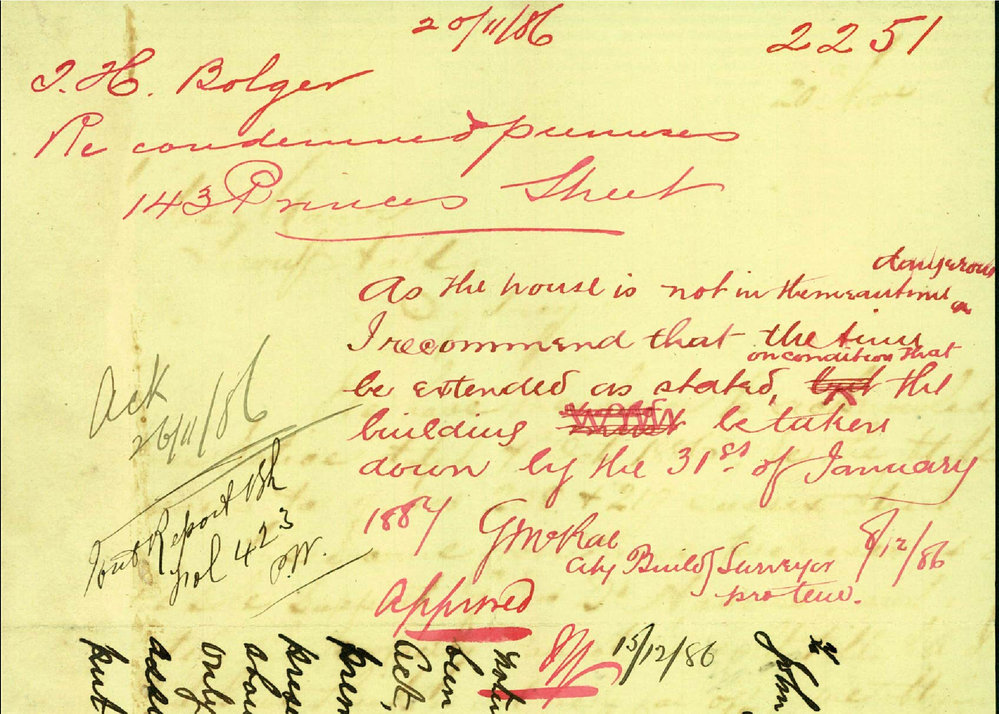 20/11/86
2251
T. H. Bolger
Re condemned premises
143 Princes Street
dangerous
As the house is not in the meantime
I recommend that the time
on condition that
be extended as stated, the
building be taken
down by the 31st of January
1887 G McRae
City Build Surveyor 8/12/86
pro tem.
Approved
15/12/86
Ack
26/11/86
Report Bk
fol 423
P.W.
John
only
put